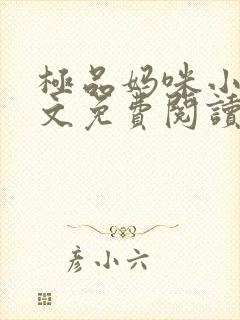 極品媽咪小
文免費閱讀
彥小六